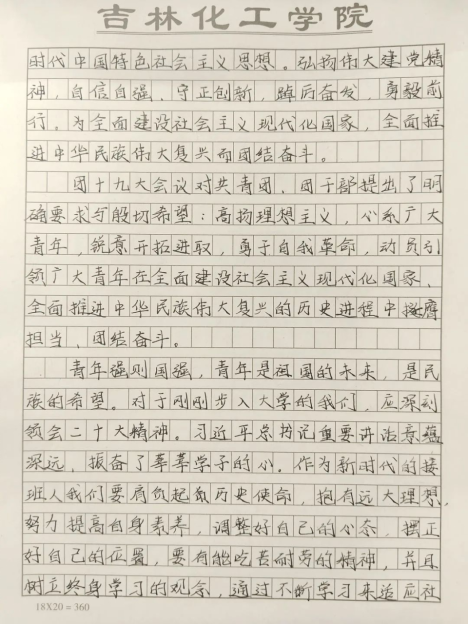 吉林化工学院
时代中国特色社会主义思想。弘扬伟大建党精
神，自信自强、守正创新，踔厉奋发、勇毅前
行。为全面建设社会主义现代化国家，全面推
进中华民族伟大复兴而团结奋斗。
团十九大会议对共青团、团干部提出了明
确要求与殷切希望：高扬理想主义，心系广大
青年，锐意开拓进取，勇于自我革命，动员引
领广大青年在全面建设社会主义现代化国家、
全面推进中华民族伟大复兴的历史进程中
担当、团结奋斗。
青年强则国强，青年是祖国的未来，是民
族的希望。对于刚刚步入大学的我们，应深刻
领会二十大精神。习近平总书记重要讲话意蕴
深远，振奋了莘莘学子的心。作为新时代的接
班人我们要肩负起历史使命，抱有远大理想，
努力提高自身素养，调整好自己的心态，摆正
好自己的位置，要有能吃苦耐劳的精神，并且
树立终身学习的观念，通过不断学习来适应社
18X20=360